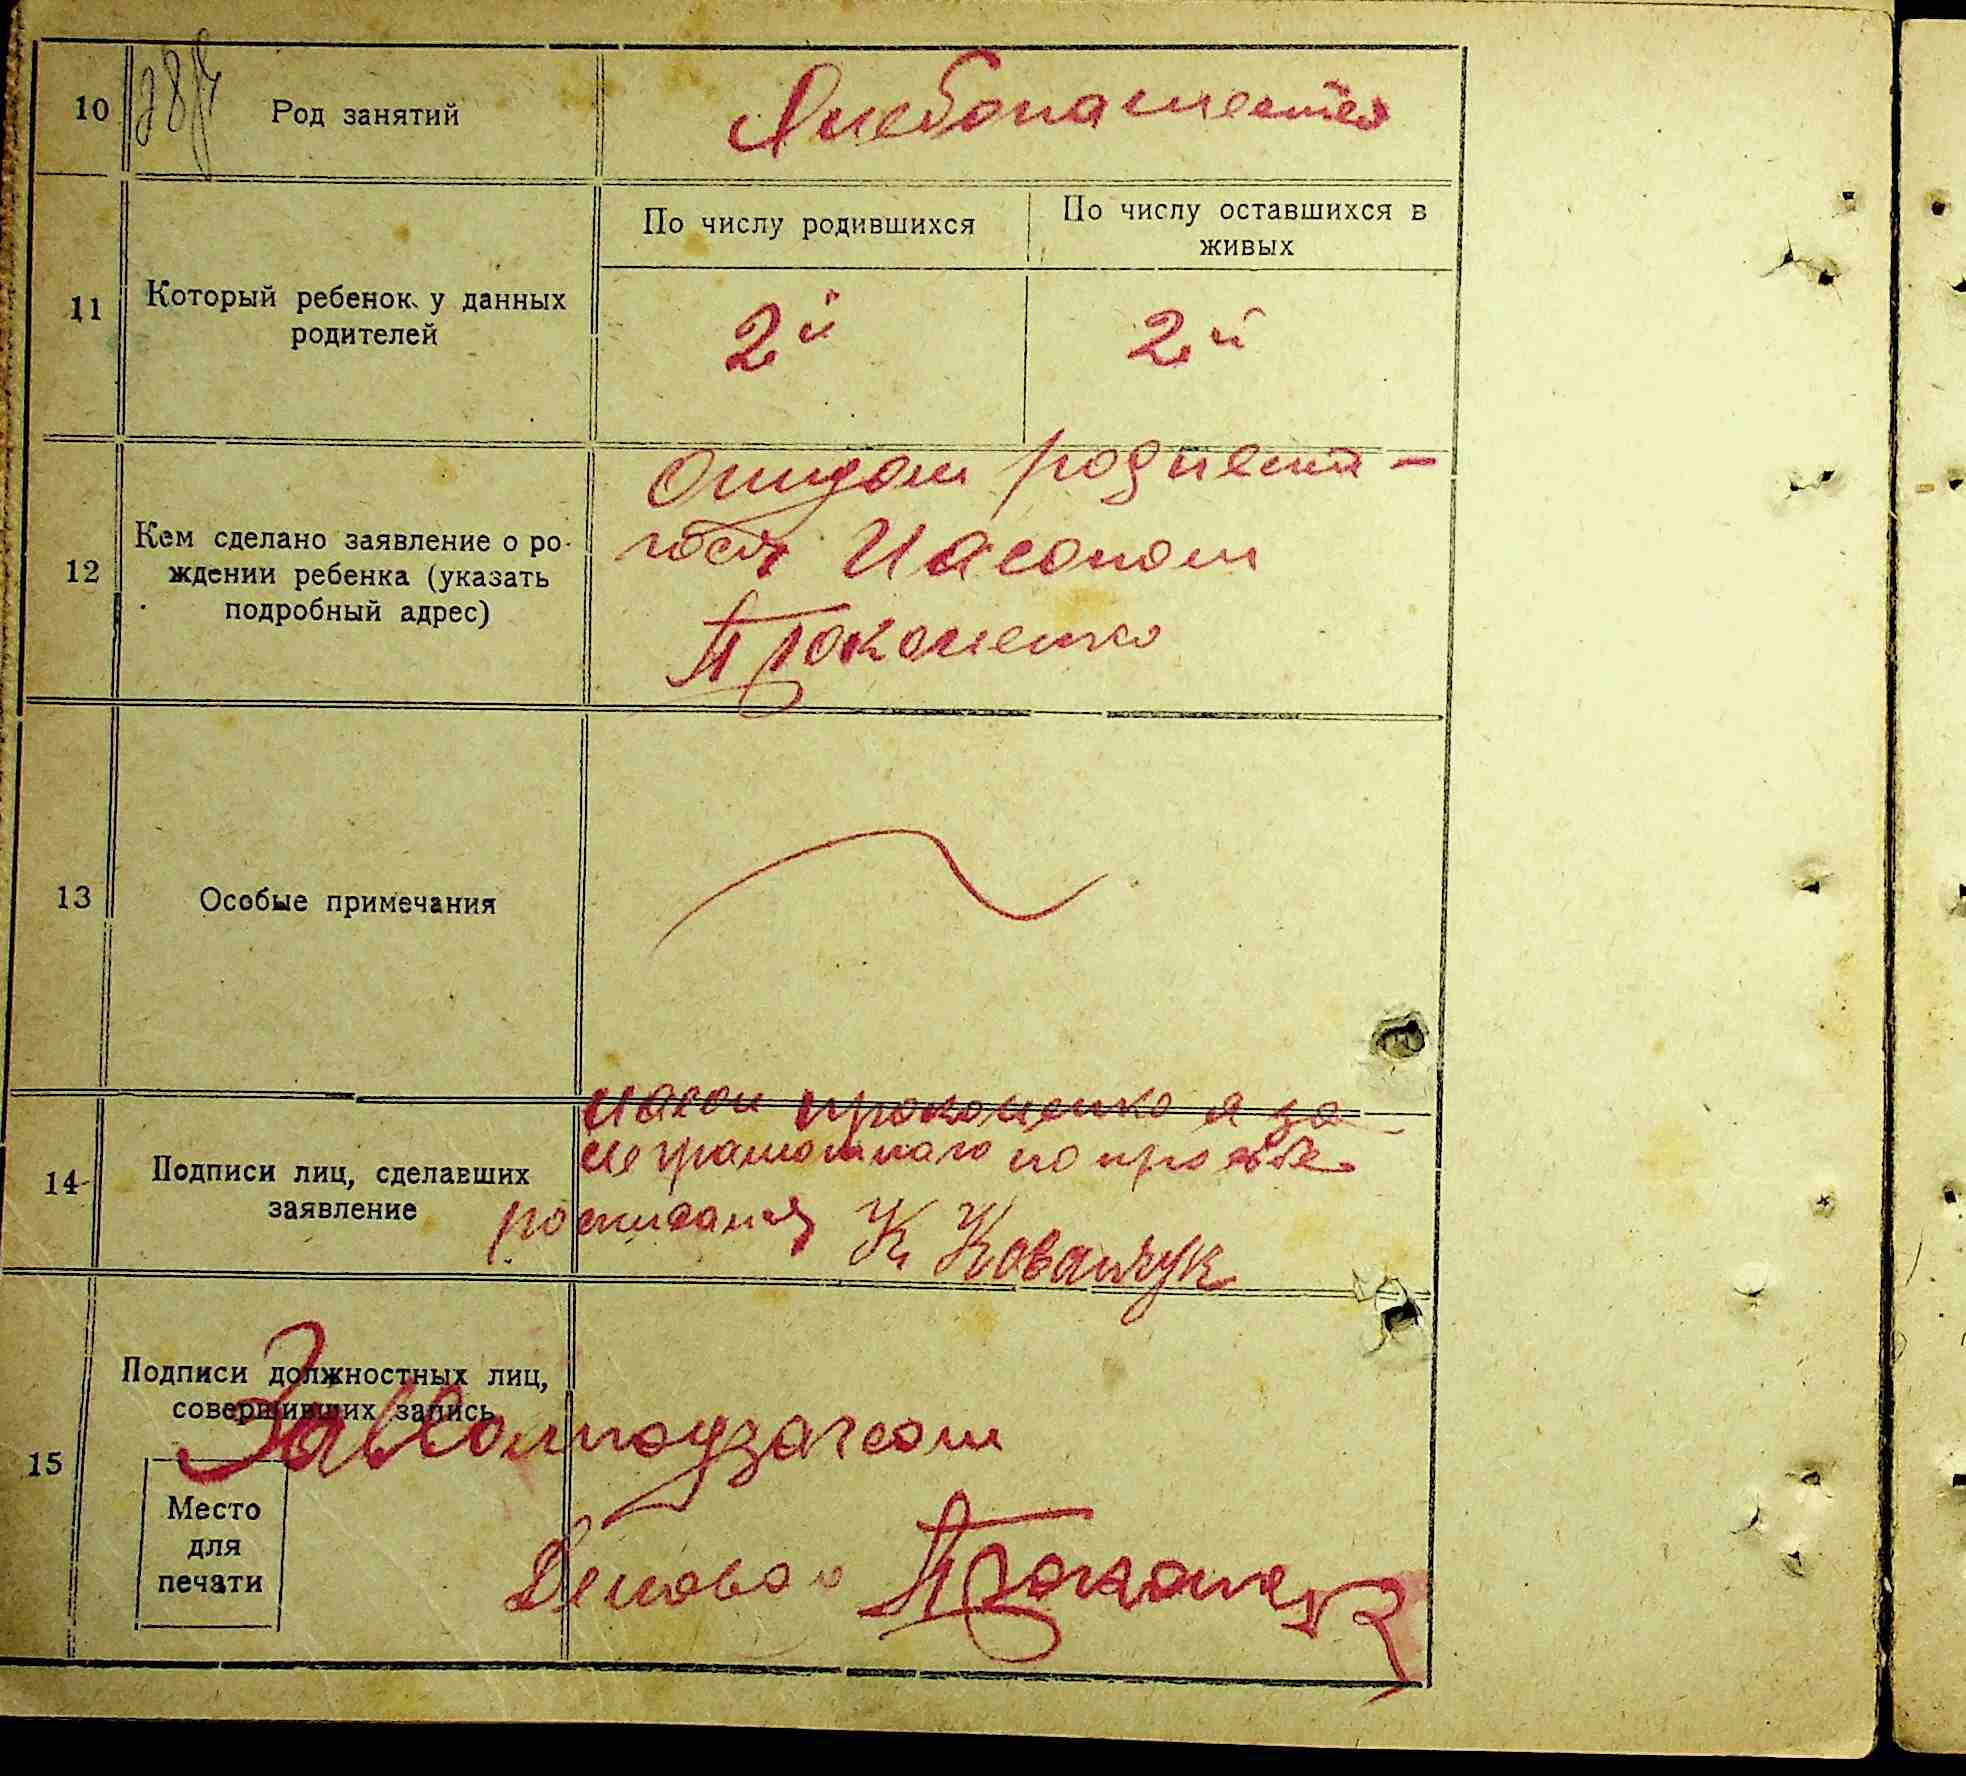 10
Род занятий
Хлебопашество
11
Который ребенок у данных
родителей
По числу родившихся
По числу оставшихся в
живых
2й
2й
12
Кем сделано заявление о ро-
ждении ребенка (указать
подробный адрес)
Отцом
Иасоном
Прокопенко
13
Особые примечания
14
Подписи лиц, сделавших
заявление
Иасон Прокопенко а за
неграмотнаго по просьбе
К Ковальчук
15
Подписи должностных лиц,
совершивших запись
Место
для
печати
Завволподзагсом